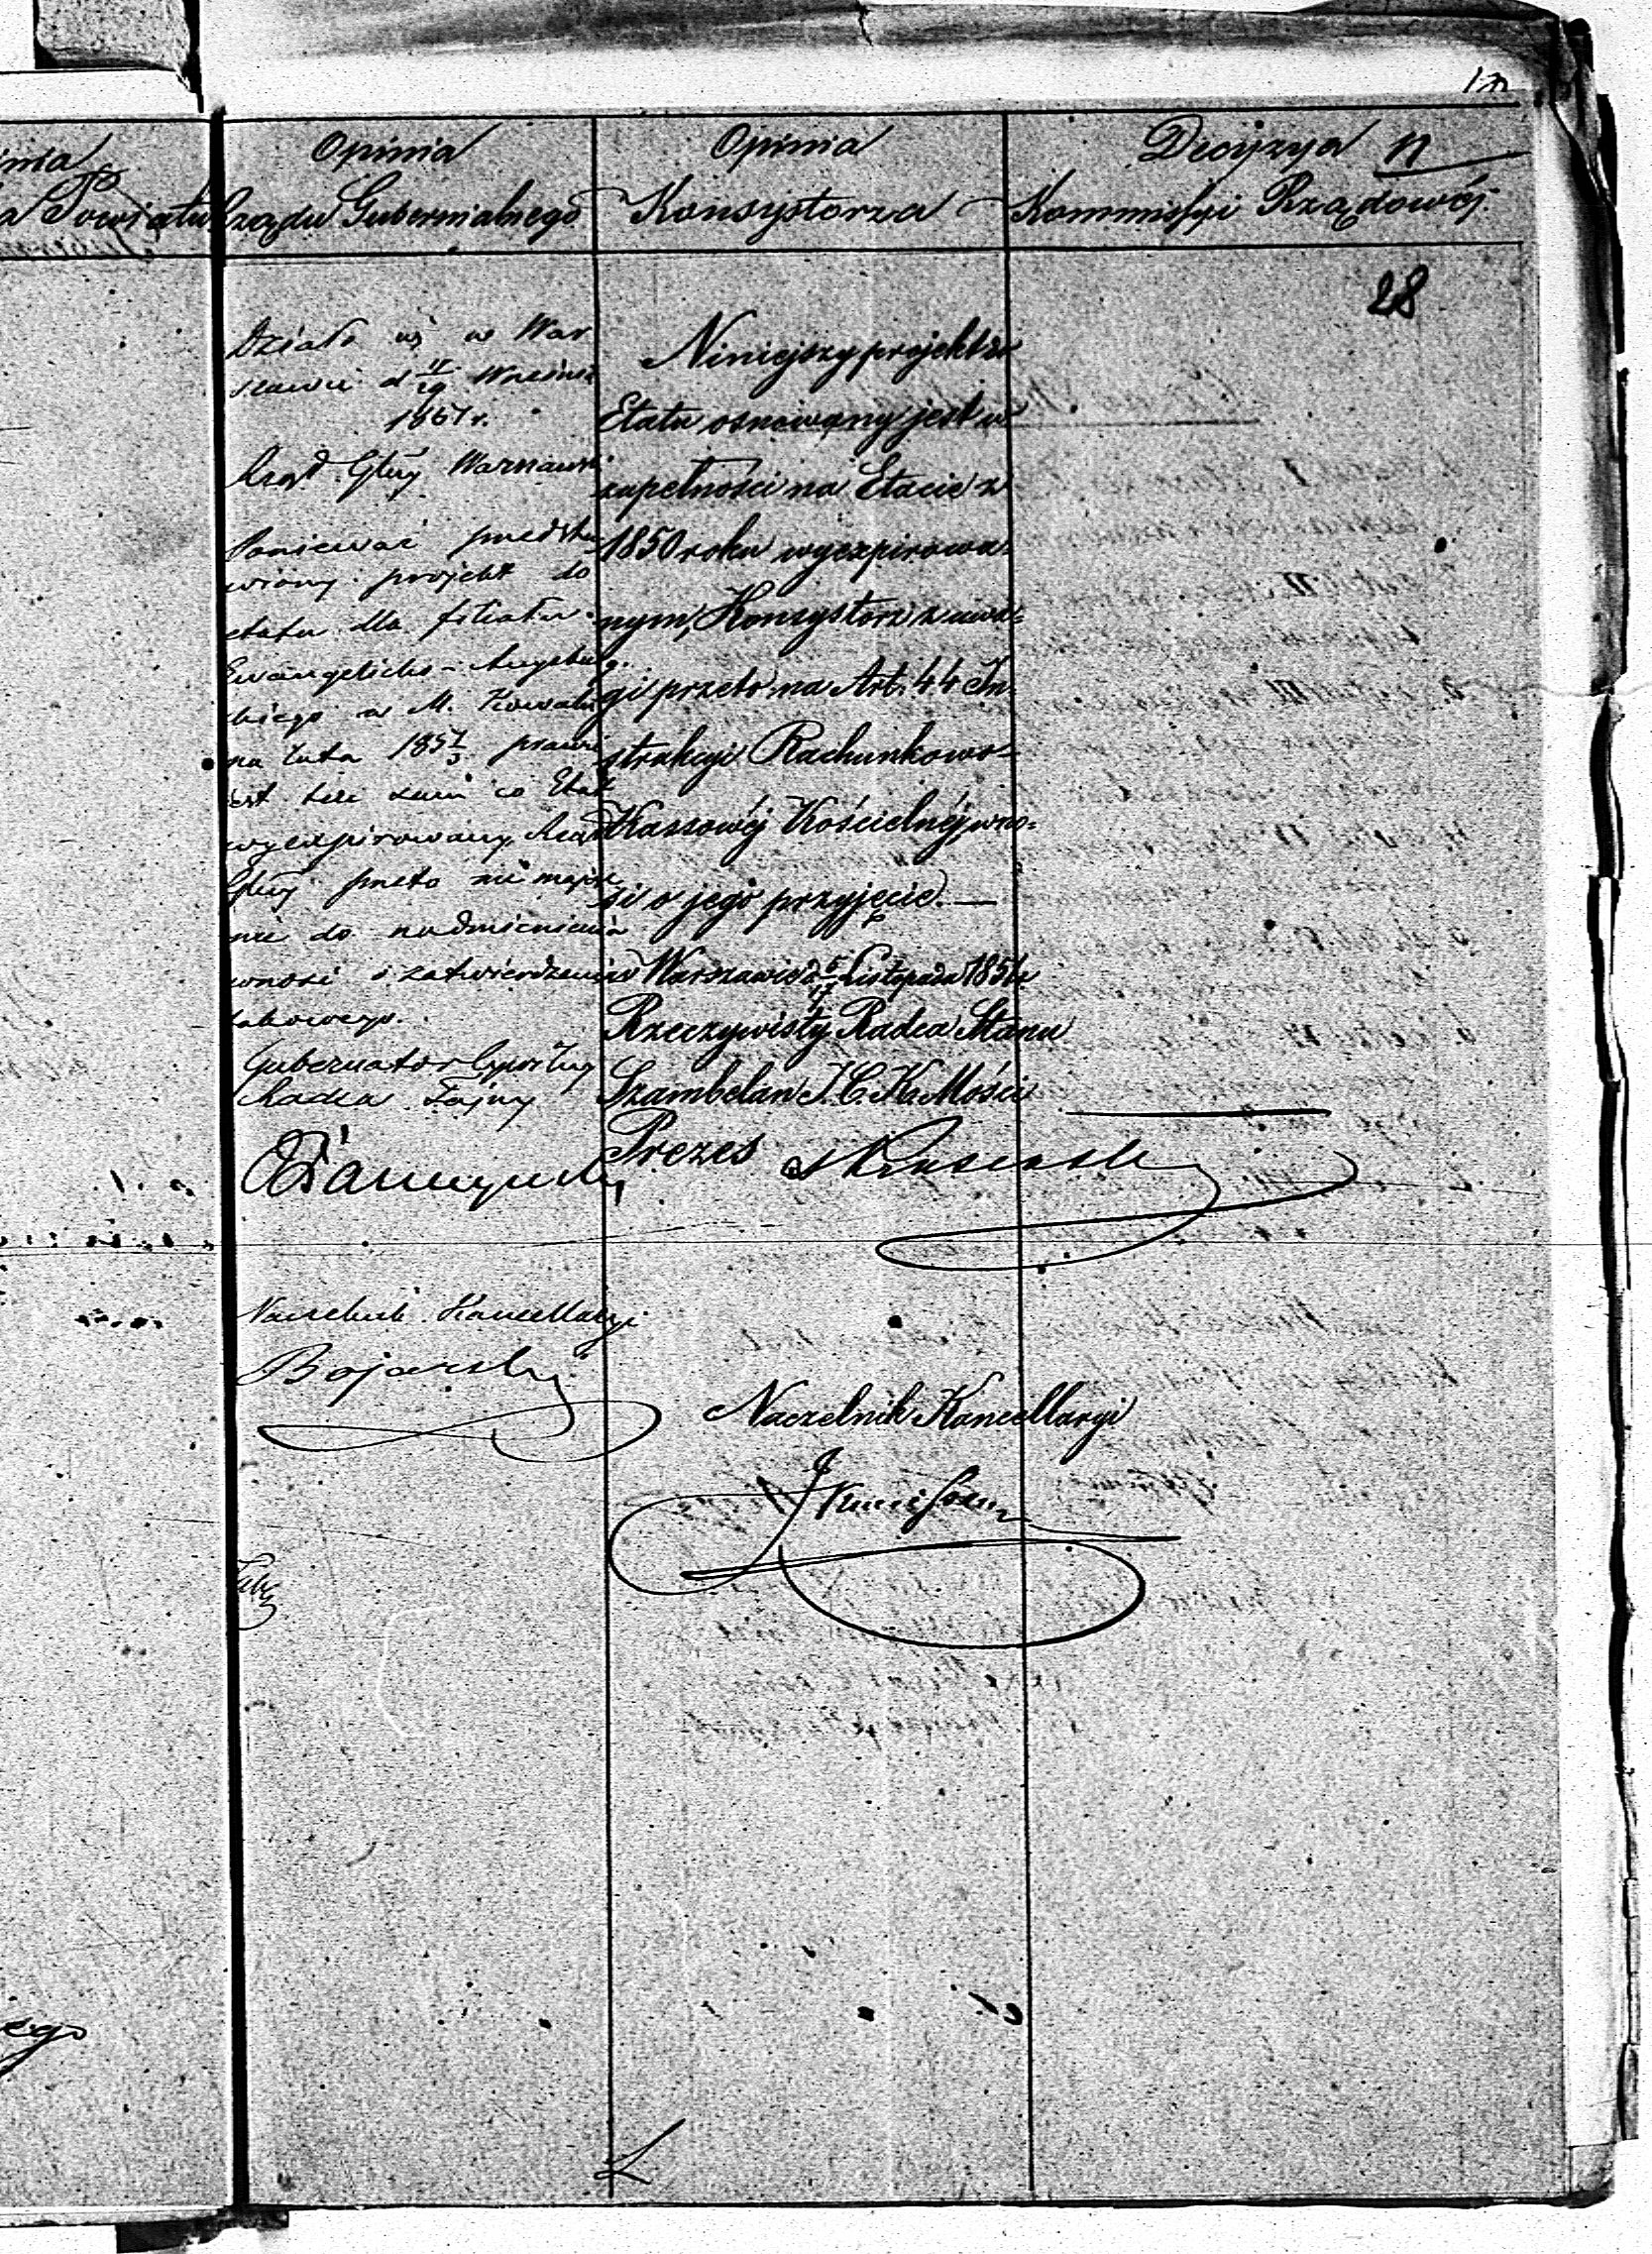 Opinia
Rządu Gubernialnego
Działo się w War
szawie d 17/29 Wrześnie
1851 r.
Rząd Głny Warszawski
Ponieważ przedsta
wiony projekt do
etatu dla filiału
Ewangelicko-Augsburg.
skiego w M. Kowalu
na lata 185 1/3 prawie
jest taki sam co Etat
wyexpirowany, Rząd
Głny przeto nie mając
nic do nadmienienia
wnosi o zatwierdzenie
takowego.
Gubernator Cywilny
Radca Tajny
Naczelnik Kancellaryi
Bojarski
Opinia
Konsystorza
Niniejszy projekt do
Etatu osnowany jest w
zupełności na Etacie z
1850 roku wyexpirowa-
nym, Konsystorz z uwa-
gi przeto na Art. 44 In-
strukcyi Rachunkowo-
Kassowéj Kościelnéj, wno-
si o jego przyjęcie.—
w Warszawie d 5/17 Listopada 1851 r
Rzeczywisty Radca Stanu
Szambelan J. C. K. Mości
Prezes
Naczelnik Kancellaryi
Decyzya
Kommissyi Rządowéj.
11
28